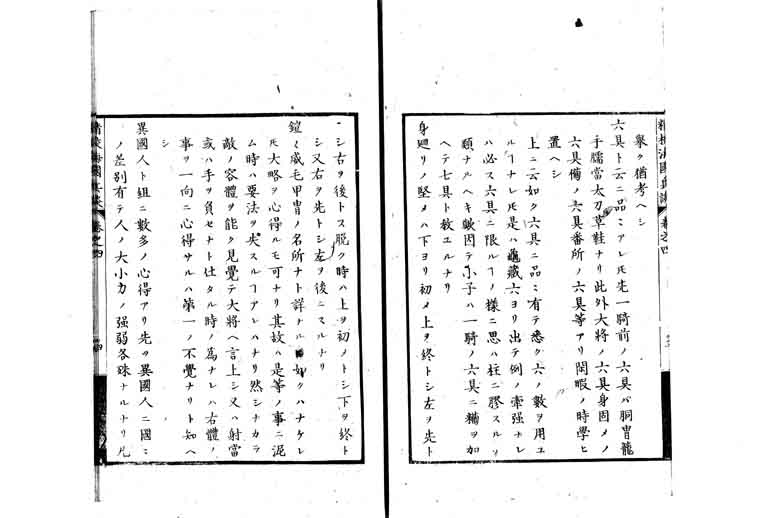 擧ク猶考ヘシ
六具ト云ニ品〻アレ𪜈先一騎前ノ六具ハ胴冑籠
手臑當太刀草鞋ナリ此外大將ノ六具身固メノ
六具備ノ六具番所ノ六具等アリ閑暇ノ時學ヒ
置ヘシ
上ニ云如ク六具ニ品〻有テ悉ク六ノ數ヲ用ユ
ルヿナレ𪜈是ハ龜藏六ヨリ出テ例ノ牽强ナレ
ハ必ス六具ニ限ルヿノ樣ニ思ハ柱ニ膠スルノ
類ナルヘキ歟因テ小子ハ一騎ノ六具ニ糒ヲ加
ヘテ七具ト敎ユルナリ
身廻リノ堅メハ下ヨリ初メ上ヲ終トシ左ヲ先ト
シ右ヲ後トス脱ク時ハ上ヲ初メトシ下ヲ終ト
シ又右ヲ先トシ左ヲ後ニスルナリ
鎧ノ威毛甲冑ノ名所ナト詳ナル如クハナケレ
𪜈大略ヲ心得ルモ可ナリ其故ハ是等ノ事ニ泥
ム時ハ要法ヲ失スルヿアレハナリ然シナカラ
敵ノ容體ヲ能ク見覺テ大將ヘ言上シ又ハ射當
或ハ手ヲ負セナト仕タル時ノ爲ナレハ右體ノ
事ヲ一向ニ心得サルハ第一ノ不覺ナリト知ヘ
シ
異國人ト組ニ數多ノ心得アリ先ヲ異國人ニ國〻
ノ差別有テ人ノ大小力ノ强弱各殊ナルナリ凡
海國兵談 卷之四